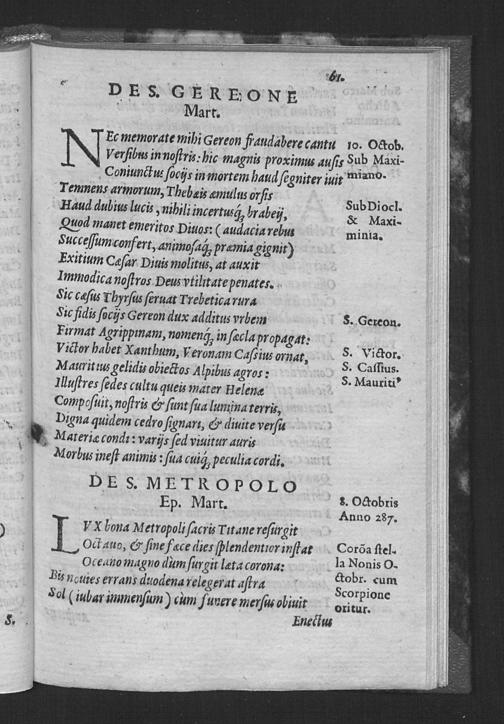 61.
DE S. GEREONE
Mart.
NEc memorate mihi Gereon fraudabere cantu
Versibus in nostris: hic magnis proximus ausis
Coniunctus socijs in mortem haud segniter iuit
Temnens armorum, Thebais æmulus orsis
Haud dubius lucis, nihili incertusq́; brabeij,
Quod manet emeritos Diuos: (audacia rebus
Successum confert, animosaq́; præmia gignit)
Exitium Cæsar Diuis molitus, at auxit
Immodica nostros Deus vtilitate penates.
Sic cæsus Thyrsus seruat Trebetica rura
Sic fidis socijs Gereon dux additus vrbem
Firmat Agrippinam, nomenq́; in sæcla propagat:
Victor habet Xanthum, Veronam Cassius ornat,
Mauritus gelidis obiectos Alpibus agros:
Illustres sedes cultu queis mater Helenæ
Composuit, nostris & sunt sua lumina terris,
Digna quidem cedro signari, & diuite versu
Materiæ condi: varijs sed viuitur auris
Morbus inest animis: sua cuiq́; peculia cordi.
10. Octob.
Sub Maxi-
miano.
Sub Diocl.
& Maxi-
minia.
S. Gereon.
S. Victor.
S. Cassius.
S. Mauriti⁹
DE S. METROPOLO
Ep. Mart.
LVX bona Metropoli sacris Titane resurgit
Octauo, & sine fæce dies splendentior instat
Oceano magno dùm surgit læta corona:
Bis nouies errans duodena relegerat astra
Sol (iubar immensum) cùm funere mersus obiuit
8. Octobris
Anno 287.
Corõa stel-
la Nonis O-
ctobr. cum
Scorpione
oritur.
Enectus
S.